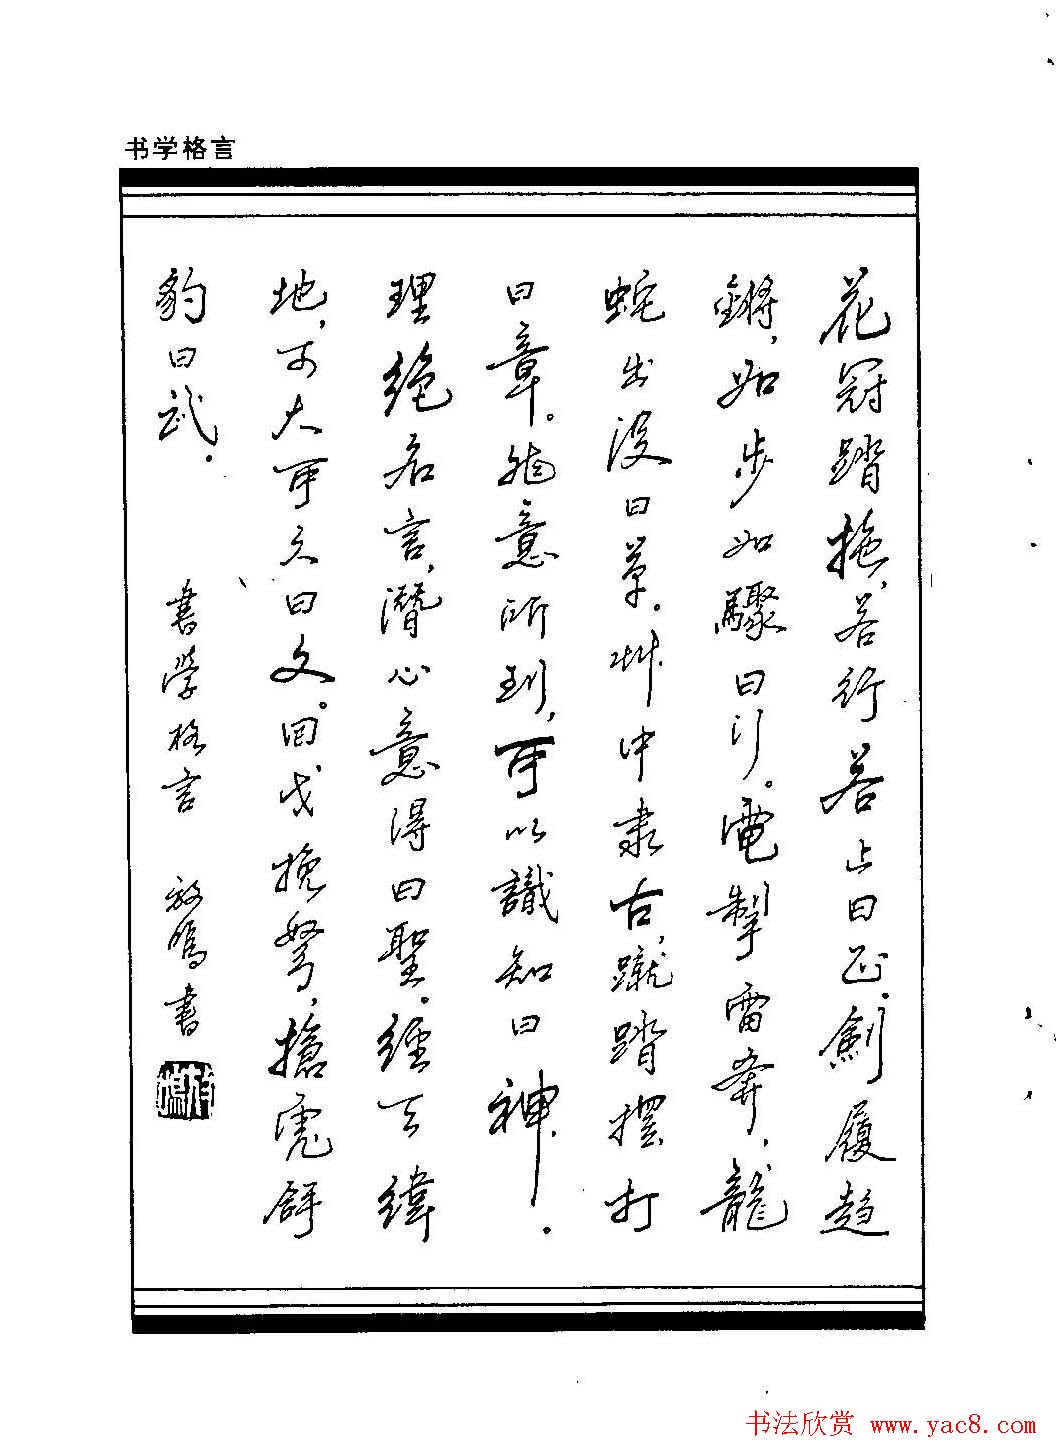 书学格言
花冠踏拖,若行若止曰正。劍履趨
鏘,如步如驟曰行。電掣雷奔,龍
蛇出没曰草。艸中隶古,蹴踏擺打
曰章。非意所到,可以識知曰神。
理絶名言,潛心意得曰聖。經天緯
地,可大可久曰文。回戈挽弩,虎
豹曰武。
書學格言 書
书法欣赏 www.yac8.com